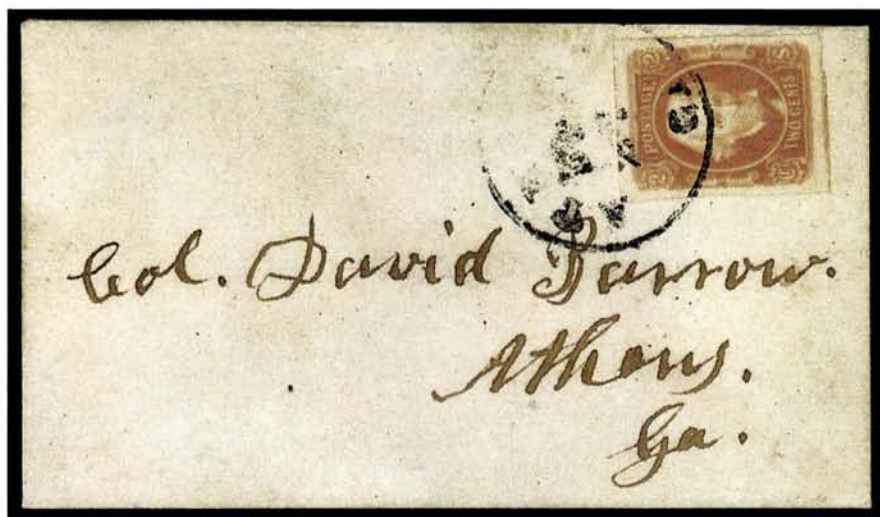 POSTAGE
TWO CENTS
2
2
C
S
Col. David Barrow.
Athens.
Ga.